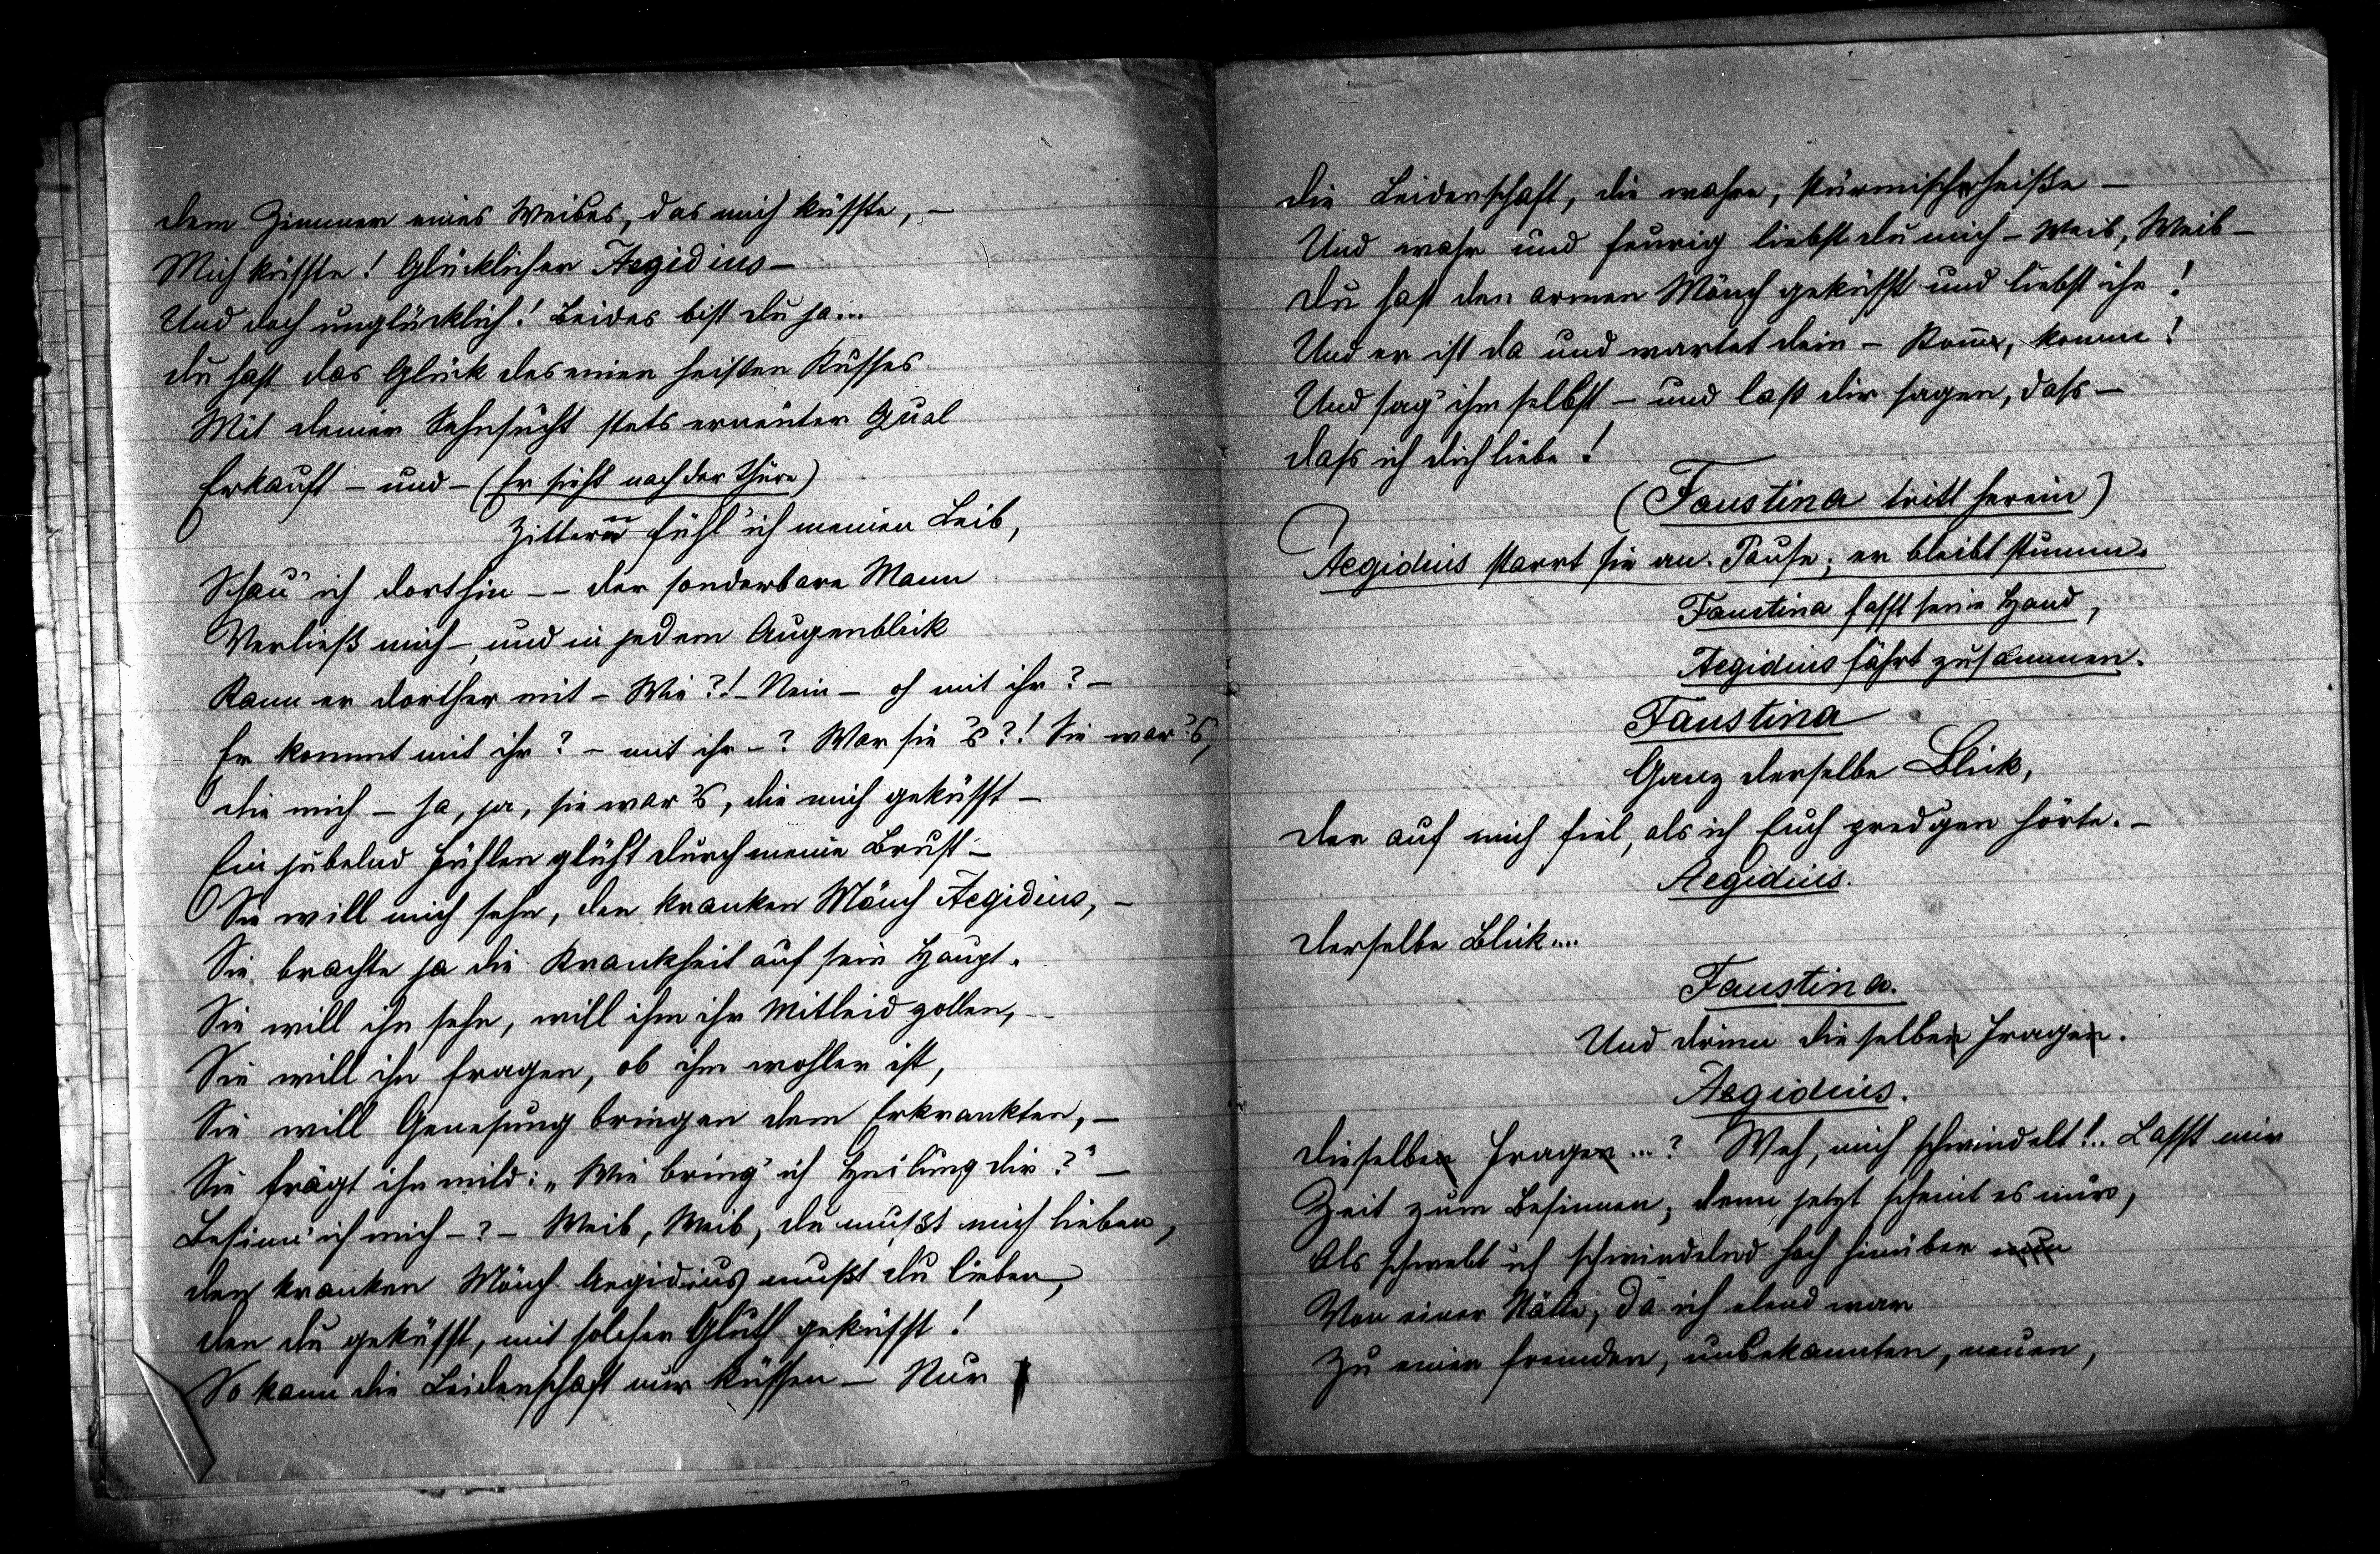 dem Zimmer eines Weibes, das mich küsste, –
Mich küsste! Glücklicher Aegidius –
Und doch unglücklich! Beides bist du ja...
du hast das Glück des einen heißen Kusses
Mit deiner Sehnsucht stets erneuter Qual
Erkauft – und – (Er sieht nach der Thüre)
Zittern fühl' ich meinen Leib,
Schau' ich dorthin – – der sonderbare Mann
Verließ mich –, und in jedem Augenblick
Kann er dorther mit – Wie?! – Nein – oh mit ihr? –
Er kommt mit ihr? – mit ihr –? War sie's?! Sie war's,
die mich – ja, ja, sie war's, die mich geküsst –
Ein jubelnd Fühlen glüht durch meine Brust –
Sie will mich sehn, den kranken Mönch Aegidius, –
Sie brachte ja die Krankheit auf sein Haupt.
Sie will ihn sehn, will ihm ihr Mitleid zollen, –
Sie will ihn fragen, ob ihm wohler ist,
Sie will Genesung bringen dem Erkrankten, –
Sie frägt ihn mild: „Wie bring' ich Heilung dir?" –
Besinn' ich mich –? – Weib, Weib, du mußt mich lieben,
den kranken Mönch Aegidius mußt du lieben,
den du geküsst, mit solcher Gluth geküsst!
So kann die Leidenschaft nur küssen – Nur
die Leidenschaft, die wahre, stürmischheiße –
Und wahr und feurig liebst du mich – Weib, Weib –
du hast den armen Mönch geküsst und liebst ihn!
Und er ist da und wartet dein – Komm, komm!
Und sag' ihm selbst – und laß dir sagen, dass –
dass ich dich liebe!
(Faustina tritt herein)
Aegidius starrt sie an. Pause; er bleibt stumm.
Faustina fasst seine Hand,
Aegidius fährt zusammen.
Faustina
Ganz derselbe Blick,
der auf mich fiel, als ich Euch predgen hörte. –
Aegidius.
derselbe Blick....
Faustina.
Und drinn dieselben Fragen.
Aegidius.
dieselben Fragen...? Weh, mich schwindelt!.. Lasst mir
Zeit zum Besinnen, denn jetzt scheint es mir,
Als schwebt ich schwindelnd hoch hinüber nun
Von einer Stätte, da ich elend war
Zu einer fremden, unbekannten, neuen,